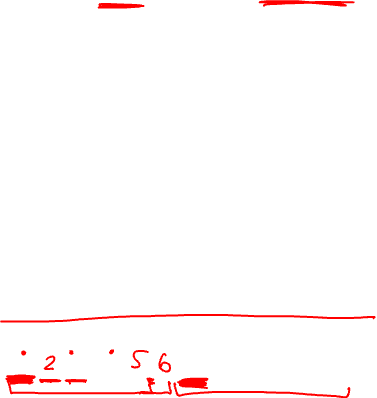 . 2 . . 5 6